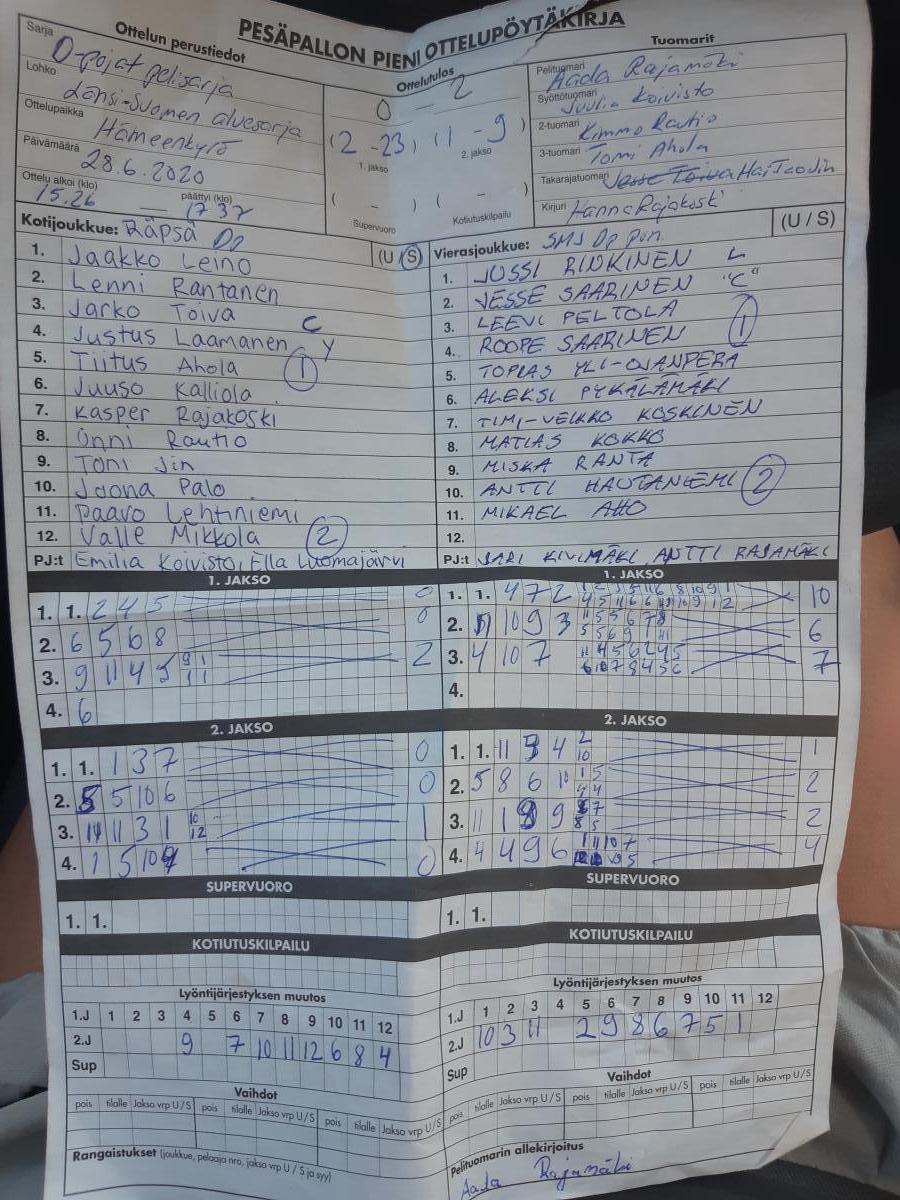 PESÄPALLON PIENI OTTELUPÖYTÄKIRJA
Ottelun perustiedot
Sarja
D-pojat pelisarja
Lohko
Länsi-Suomen aluesarja
Ottelupaikka
Hämeenkyrö
Päivämäärä
28.6.2020
Ottelu alkoi (klo) päättyi (klo)
15.26 — 1737
Ottelutulos
0 — 2
(2 - 23) (1 - 9)
1. jakso 2. jakso
( - ) ( - )
Supervuoro Kotiutuskilpailu
Tuomarit
Pelituomari
Aada Rajamäki
Syöttötuomari
Juulia Koivisto
2-tuomari Kimmo Rautio
3-tuomari Tomi Ahola
Takarajatuomari
Kirjuri Hanna Rajakoski
Kotijoukkue: Räpsä (U/S)
1. Jaakko Leino
2. Lenni Rantanen
3. Jarko Toiva
4. Justus Laamanen C
5. Tiitus Ahola 1
6. Juuso Kalliola
7. Kasper Rajakoski
8. Onni Rautio
9. Toni Jin
10. Joona Palo
11. Paavo Lehtiniemi
12. Valle Mikkola 2
PJ:t Emilia Koivisto, Ella Luomajärvi
Vierasjoukkue: SMJ (U / S)
1. JUSSI RINKINEN L
2. JESSE SAARINEN "C"
3. LEEVI PELTOLA
4. ROOPE SAARINEN 1
5. TOPIAS YLI-OJANPERÄ
6. ALEKSI PYKÄLÄMÄKI
7. TIMI-VEIKKO KOSKINEN
8. MATIAS KOKKO
9. MISKA RANTA
10. ANTTI HAUTANIEMI 2
11. MIKAEL AHO
12.
PJ:t SARI KIVIMÄKI, ANTTI RAJAMÄKI
1. JAKSO
1. 1. 2 4 5 0
2. 6 5 6 8 0
3. 9 11 4 5 9 1 2
4. 6
2. JAKSO
1. 1. 1 3 7 0
2. 5 10 6 0
3. 11 3 1 10 12 1
4. 1 5 10 0
SUPERVUORO
1. 1.
KOTIUTUSKILPAILU
Lyöntijärjestyksen muutos
1.J 1 2 3 4 5 6 7 8 9 10 11 12
2.J 9 7 10 11 12 6 8 4
Sup
Vaihdot
pois tilalle Jakso vrp U/S pois tilalle Jakso vrp U/S pois tilalle Jakso vrp U/S
Rangaistukset (joukkue, pelaaja nro, jakso vrp U / S ja syy)
1. JAKSO
1. 1. 4 7 2 10
2. 10 9 3 6
3. 4 10 7 7
4.
2. JAKSO
1. 1. 11 9 4 2 10 1
2. 5 8 6 10 1 5 4 4 2
3. 11 1 9 7 8 5 2
4. 4 4 9 6 1 11 10 7 4
SUPERVUORO
1. 1.
KOTIUTUSKILPAILU
Lyöntijärjestyksen muutos
1.J 1 2 3 4 5 6 7 8 9 10 11 12
2.J 10 3 11 2 9 8 6 7 5 1
Sup
Vaihdot
pois tilalle Jakso vrp U/S pois tilalle Jakso vrp U/S pois tilalle Jakso vrp U/S
Pelituomarin allekirjoitus
Aada Rajamäki